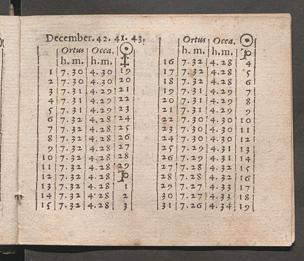 December. 42. 41. 43.
Ortus Occa. ☉
h. m. h. m. ♐
1 7.30 4.30 19
2 7.30 4.30 20
3 7.31 4.29 21
4 7.31 4.29 22
5 7.31 4.29 23
6 7.32 4.28 24
7 7.32 4.28 25
8 7.32 4.28 26
9 7.32 4.28 27
10 7.32 4.28 28
11 7.32 4.28 29
12 7.32 4.28 ♑
13 7.32 4.28 1
14 7.32 4.28 2
15 7.32 4.28 3
Ortus Occa. ☉
h. m. h. m. ♑
16 7.32 4.28 4
17 7.32 4.28 5
18 7.32 4.28 6
19 7.31 4.29 7
20 7.31 4.29 8
21 7.31 4.29 9
22 7.30 4.30 10
23 7.30 4.30 11
24 7.30 4.30 12
25 7.29 4.31 13
26 7.29 4.31 14
27 7.28 4.32 15
28 7.28 4.32 16
29 7.27 4.33 17
30 7.27 4.33 18
31 7.26 4.34 19